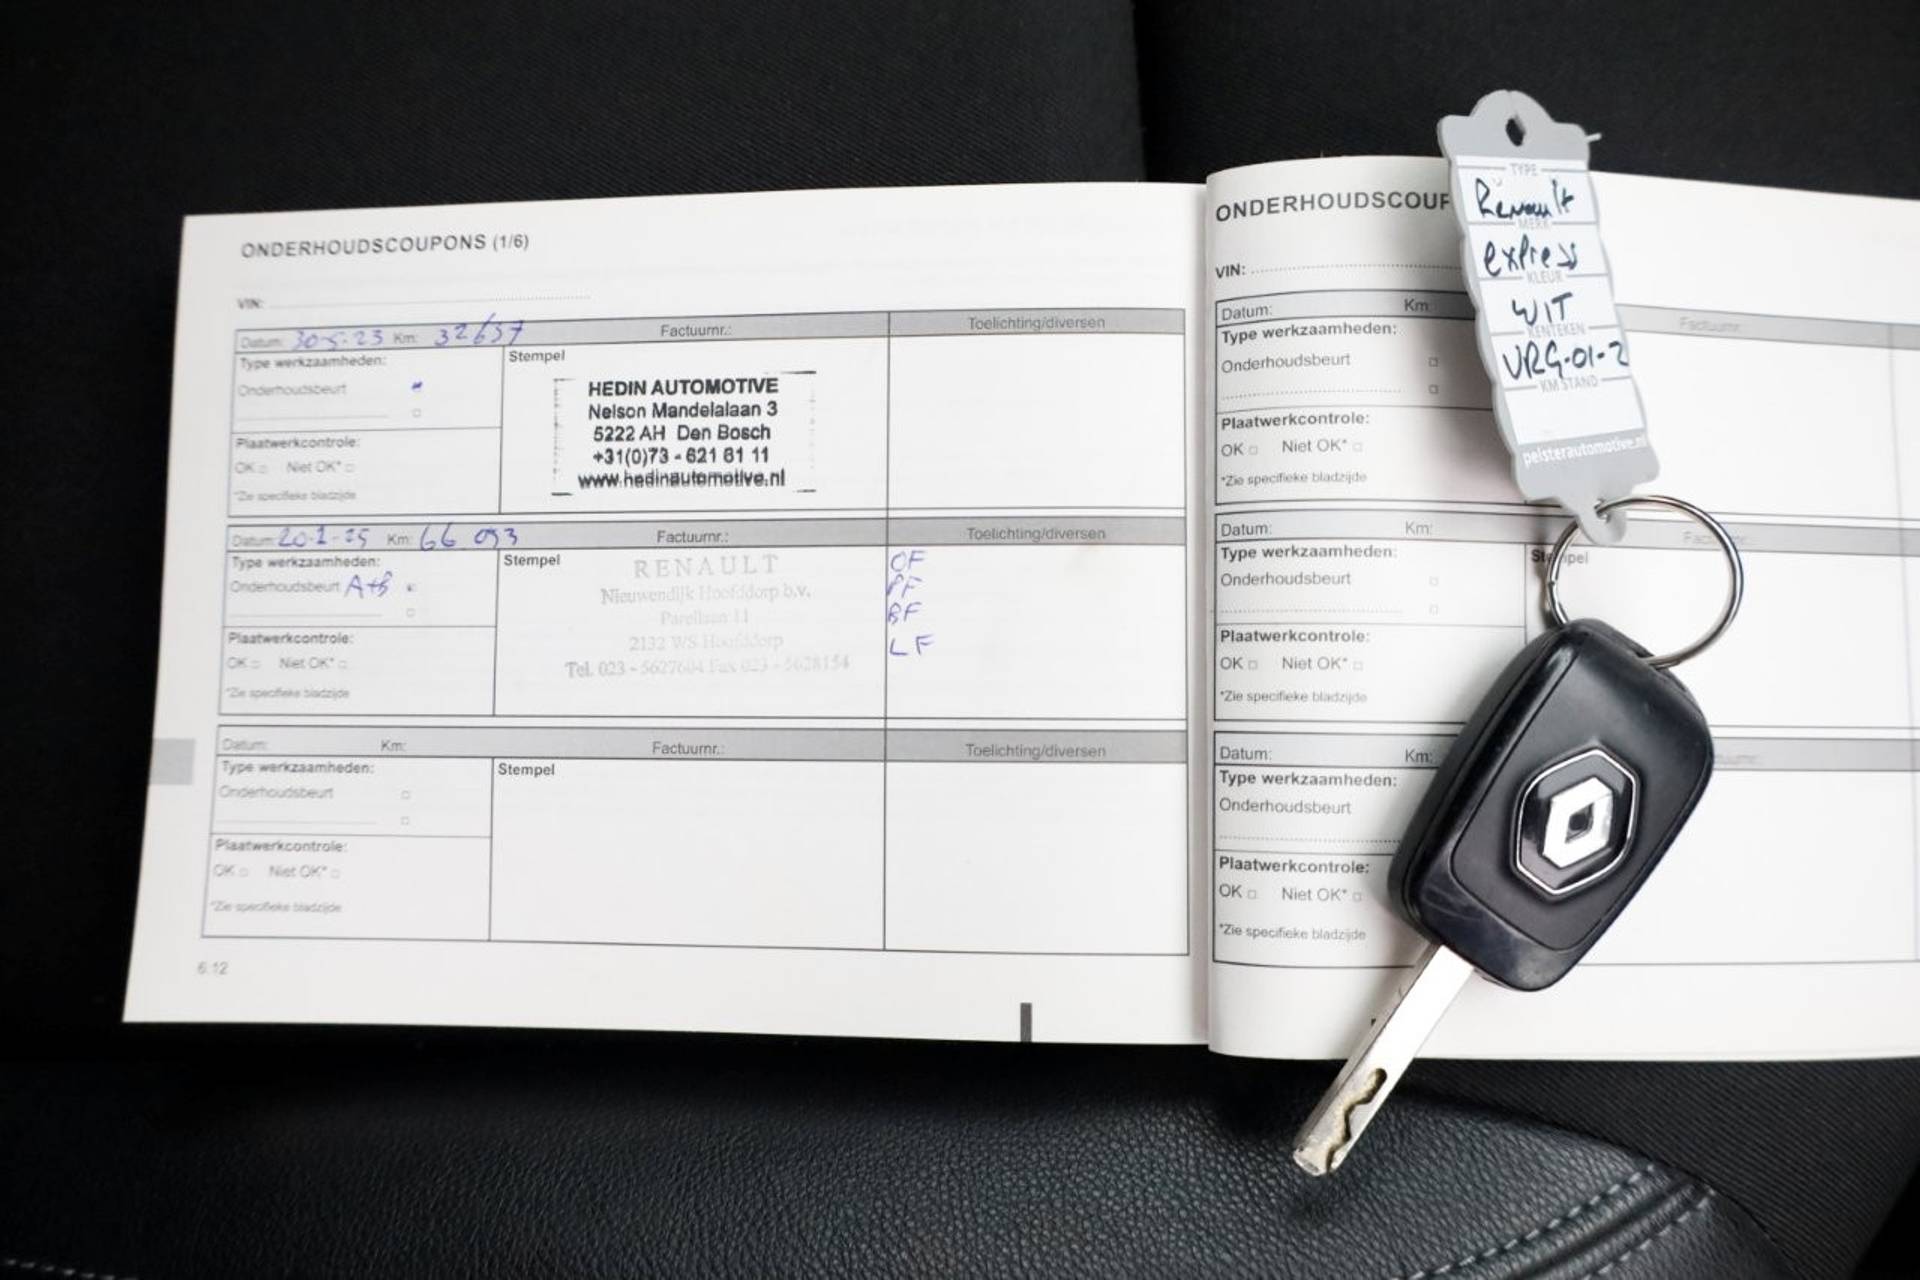 ONDERHOUDSCOUPONS (1/6)
VIN:
Datum: 30-5-23 Km: 32657 Factuurnr.: Toelichting/diversen
Type werkzaamheden:
Stempel
Onderhoudsbeurt
HEDIN AUTOMOTIVE
Nelson Mandelalaan 3
5222 AH Den Bosch
+31(0)73 - 621 61 11
www.hedinautomotive.nl
Plaatwerkcontrole:
OK Niet OK*
*Zie specifieke bladzijde
Datum: 20-1-25 Km: 66 093 Factuurnr.: Toelichting/diversen
Type werkzaamheden:
Stempel
Onderhoudsbeurt A+B
RENAULT
Nieuwendijk Hoofddorp b.v.
Parellaan 11
2132 WS Hoofddorp
Tel. 023 - 5627604 Fax 023 - 5628154
OF
PF
BF
LF
Plaatwerkcontrole:
OK Niet OK*
*Zie specifieke bladzijde
Datum: Km: Factuurnr.: Toelichting/diversen
Type werkzaamheden:
Stempel
Onderhoudsbeurt
Plaatwerkcontrole:
OK Niet OK*
*Zie specifieke bladzijde
6.12
ONDERHOUDSCOUP
VIN:
Datum: Km: Factuurnr.
Type werkzaamheden:
Onderhoudsbeurt
Plaatwerkcontrole:
OK Niet OK*
*Zie specifieke bladzijde
Datum: Km:
Type werkzaamheden:
Stempel
Onderhoudsbeurt
Plaatwerkcontrole:
OK Niet OK*
*Zie specifieke bladzijde
Datum: Km:
Type werkzaamheden:
Onderhoudsbeurt
Plaatwerkcontrole:
OK Niet OK*
*Zie specifieke bladzijde
TYPE
Renault
MERK
express
KLEUR
WIT
KENTEKEN
VRG-01-Z
KM STAND
pelsterautomotive.nl